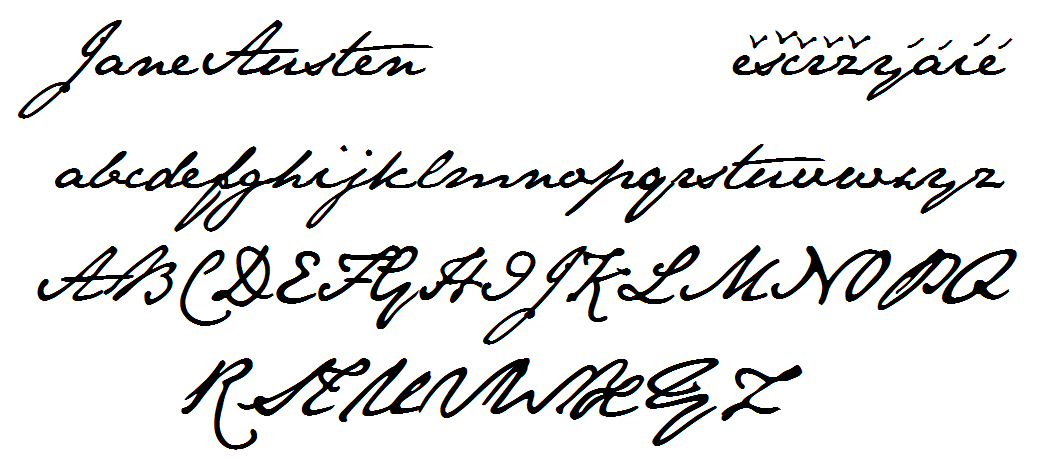 Jane Austen ěščřžýáíé
abcdefghijklmnopqrstuvwxyz
ABCDEFGHIJKLMNOPQ
RSTUVWXYZ